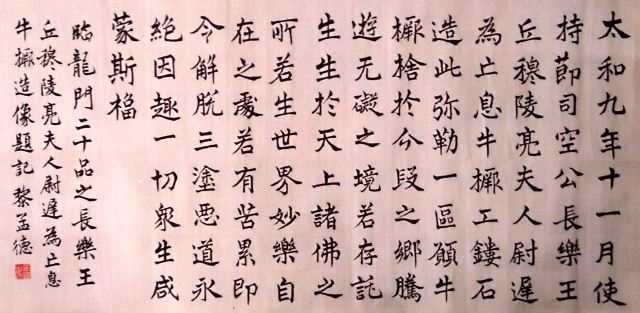 太和九年十一月使
持節司空公長樂王
丘穆陵亮夫人尉遲
為亡息牛橛工鏤石
造此弥勒一區願牛
橛捨於今段之鄉騰
遊无礙之境若存託
生生於天上諸佛之
所若生世界妙樂自
在之處若有苦累即
令解脫三塗惡道永
絕因趣一切衆生咸
蒙斯福
臨龍門二十品之長樂王
丘穆陵亮夫人尉遲為亡息
牛橛造像題記 黎孟德